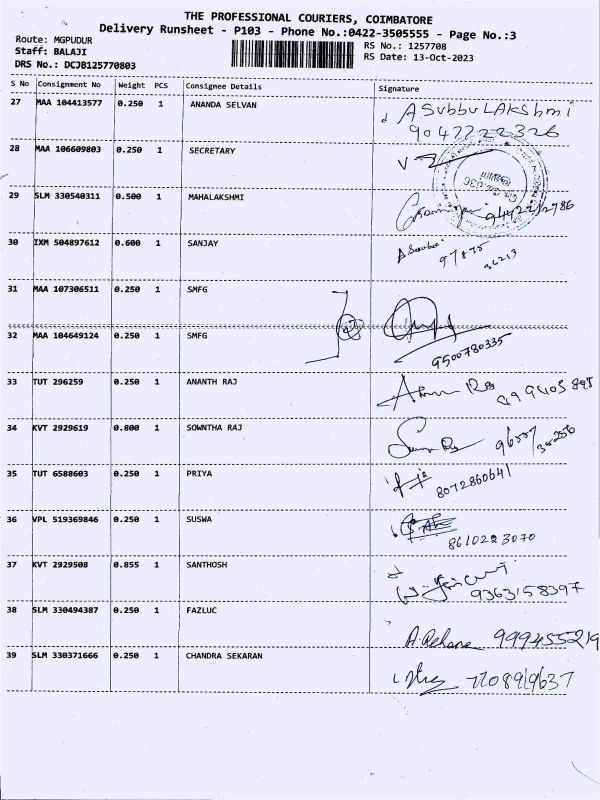 THE PROFESSIONAL COURIERS, COIMBATORE
Delivery Runsheet - P103 - Phone No.:0422-3505555 - Page No.:3
Route: MGPUDUR
RS No.: 1257708
Staff: BALAJI
RS Date: 13-Oct-2023
DRS No.: DCJB125770803
S No Consignment No Weight PCS Consignee Details Signature
27 MAA 104413577 0.250 1 ANANDA SELVAN A SUBBULAKshmi
9047222326
28 MAA 106609803 0.250 1 SECRETARY
29 SLM 330540311 0.500 1 MAHALAKSHMI
30 IXM 504897612 0.600 1 SANJAY
31 MAA 107306511 0.250 1 SMFG
32 MAA 104649124 0.250 1 SMFG
9500780335
33 TUT 296259 0.250 1 ANANTH RAJ
34 KVT 2929619 0.800 1 SOWNTHA RAJ
35 TUT 6588603 0.250 1 PRIYA
8072860641
36 VPL 519369846 0.250 1 SUSWA
8610223070
37 KVT 2929508 0.855 1 SANTHOSH
9363158397
38 SLM 330494387 0.250 1 FAZLUC
A.Rehana 9994555219
39 SLM 330371666 0.250 1 CHANDRA SEKARAN
7708919637